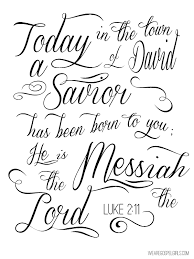 Today in the town
a of David
Savior
has been born to you;
He is the Messiah
the
Lord LUKE 2:11